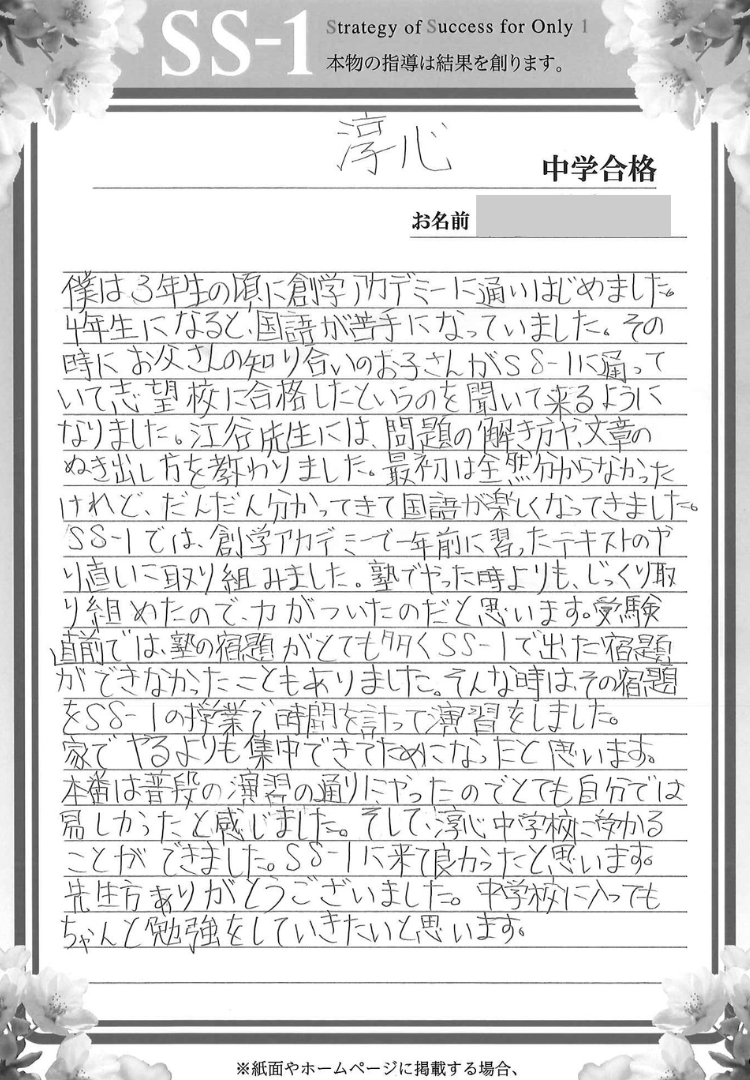 SS-1
Strategy of Success for Only 1
本物の指導は結果を創ります。
淳心
中学合格
お名前
僕は3年生の頃に創学アカデミーに通いはじめました。
4年生になると、国語が苦手になっていました。その
時にお父さんの知り合いのお子さんがSS-1に通って
いて志望校に合格したというのを聞いて来るように
なりました。江谷先生には、問題の解き方や、文章の
ぬき出し方を教わりました。最初は全然分からなかった
けれど、だんだん分かってきて国語が楽しくなってきました。
SS-1では、創学アカデミーで一年前に習ったテキストのや
り直しに取り組みました。塾でやった時よりも、じっくり取
り組めたので、力がついたのだと思います。受験
直前では、塾の宿題がとても多くSS-1で出た宿題
ができなかったこともありました。そんな時は、その宿題
をSS-1の授業で時間を計って演習をしました。
家でやるよりも集中できてためになったと思います。
本番は普段の演習の通りにやったのでとても自分では
易しかったと感じました。そして、淳心中学校に受かる
ことができました。SS-1に来て良かったと思います。
先生方ありがとうございました。中学校に入っても
ちゃんと勉強をしていきたいと思います。
※紙面やホームページに掲載する場合、